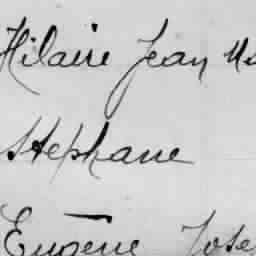 Hilaire Jean
Stephane
Eugene Jose